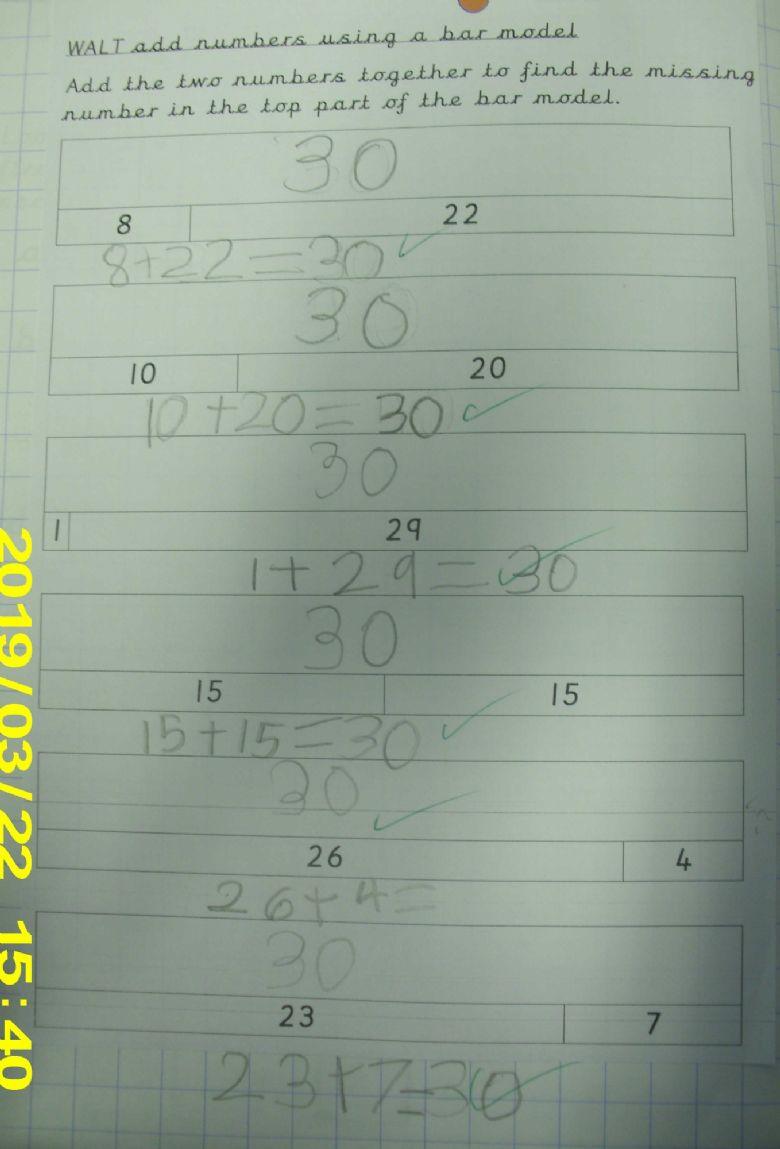 WALT add numbers using a bar model
Add the two numbers together to find the missing
number in the top part of the bar model.
30
8 22
8+22=30
30
10 20
10+20=30
30
1 29
1+29=30
30
15 15
15+15=30
30
26 4
26+4=
30
23 7
23+7=30
2019/03/22 15:40